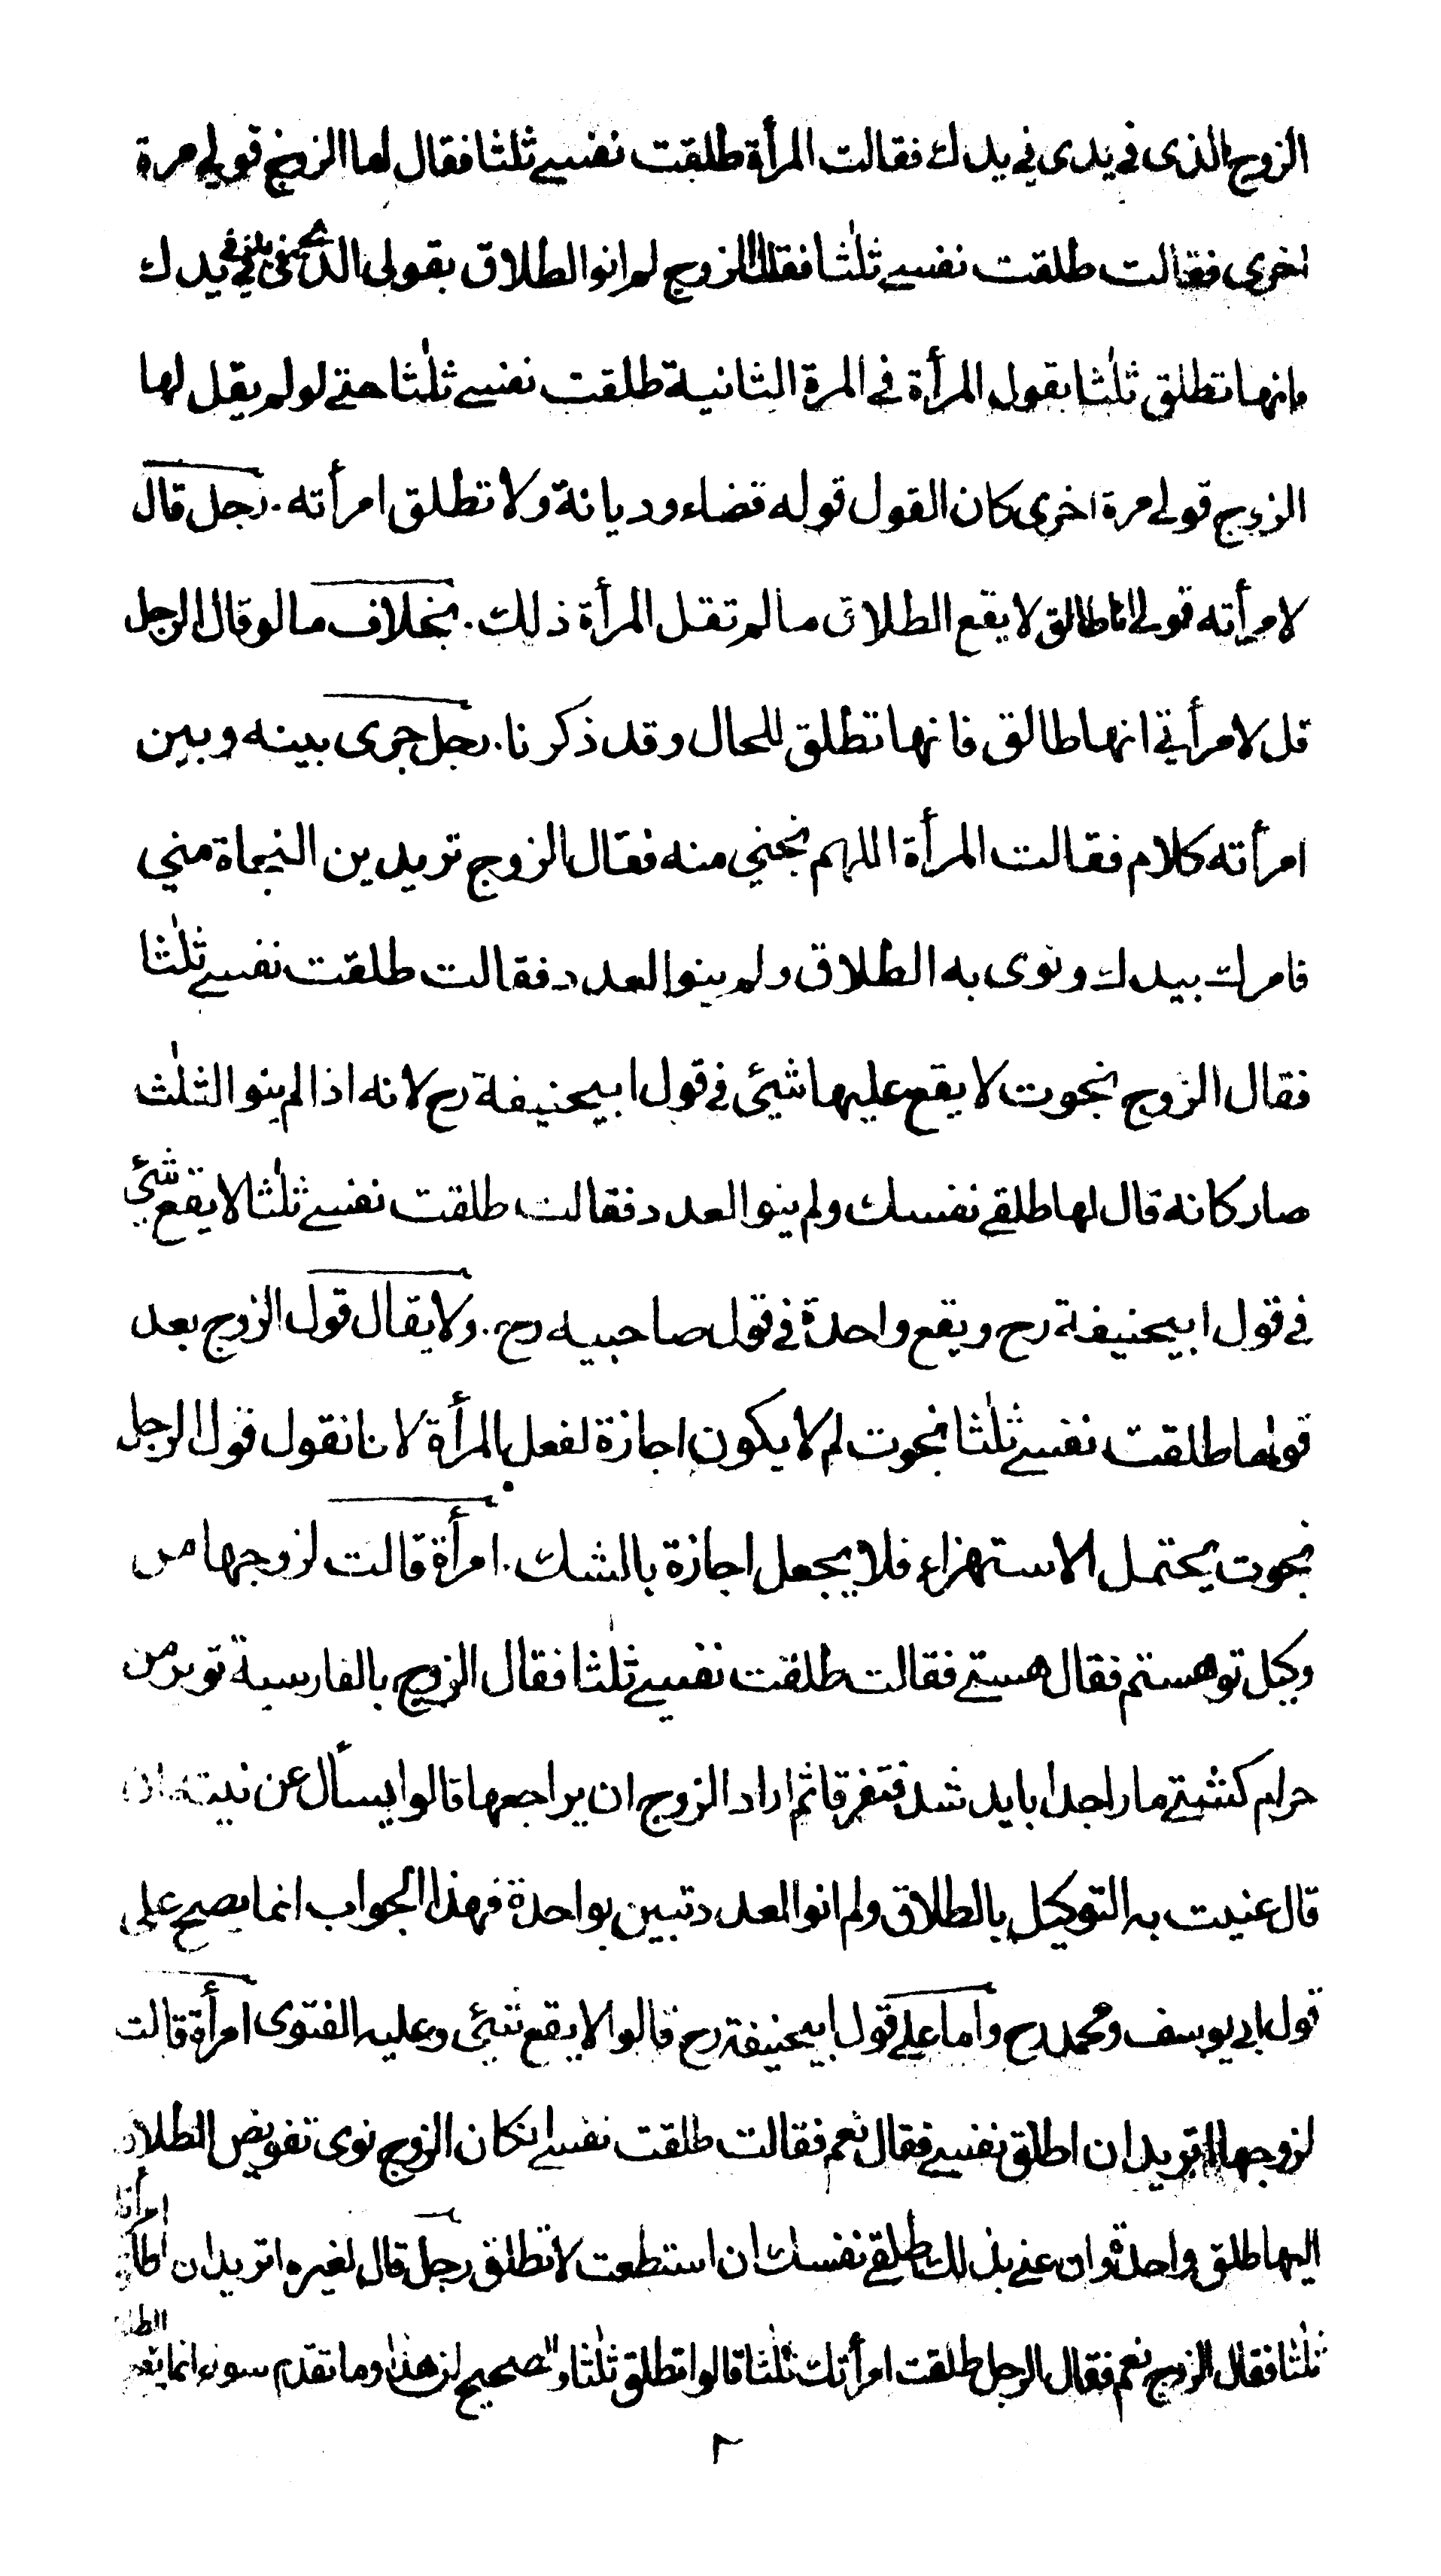 الزوج الذى فى يدى فى يدك فقالت المرأة طلقت نفسى ثلثا فقال لها الزوج قولى مرة
اخرى فقالت طلقت نفسى ثلثا فقال الزوج لم انو الطلاق بقولى الذى فى يدك
فانها تطلق ثلثا بقول المرأة فى المرة الثانية طلقت نفسى ثلثا حتى لو لم يقل لها
الزوج قولى مرة اخرى كان القول قوله قضاء وديانة ولا تطلق امرأته. رجل قال
لامرأته قولى انا طالق لا يقع الطلاق ما لم تقل المرأة ذلك. بخلاف ما لو قال الرجل
قل لامرأتى انها طالق فانها تطلق للحال وقد ذكرنا. رجل جرى بينه وبين
امرأته كلام فقالت المرأة اللهم نجني منه فقال الزوج تريدين النجاة مني
فامرك بيدك ونوى به الطلاق ولم ينو العدد فقالت طلقت نفسى ثلثا
فقال الزوج نجوت لا يقع عليها شيئ فى قول ابيحنيفة رح لانه اذا لم ينو الثلث
صار كانه قال لها طلقى نفسك ولم ينو العدد فقالت طلقت نفسى ثلثا لا يقع شئ
فى قول ابيحنيفة رح ويقع واحدة فى قول صاحبيه رح. ولا يقال قول الزوج بعد
قولها طلقت نفسى ثلثا نجوت لم لا يكون اجازة لفعل المرأة لانا نقول قول الرجل
نجوت يحتمل الاستهزاء فلا يجعل اجازة بالشك. امرأة قالت لزوجها من
وكيل تو هستم فقال هستى فقالت طلقت نفسى ثلثا فقال الزوج بالفارسية تو بر من
حرام كشتى مارا جدا بايد شد فتفرقا ثم اراد الزوج ان يراجعها قالوا يسأل عن نيته ان
قال عنيت به التوكيل بالطلاق ولم انو العدد تبين بواحدة فهذا الجواب انما يصح على
قول ابى يوسف ومحمد رح واما على قول ابيحنيفة رح قالوا لا يقع شيئ وعليه الفتوى امرأة قالت
لزوجها اتريد ان اطلق نفسى فقال نعم فقالت طلقت نفسى انكان الزوج نوى تفويض الطلاق
اليها طلق واحدة وان عنى بذلك طلقى نفسك ان استطعت لا تطلق رجل قال لغيره اتريد ان اطلق امرأتك
ثلثا فقال الزوج نعم فقال الرجل طلقت امرأتك ثلثا قالوا تطلق ثلثا والصحيح ان هذا وما تقدم سواء انما يقع الطلاق